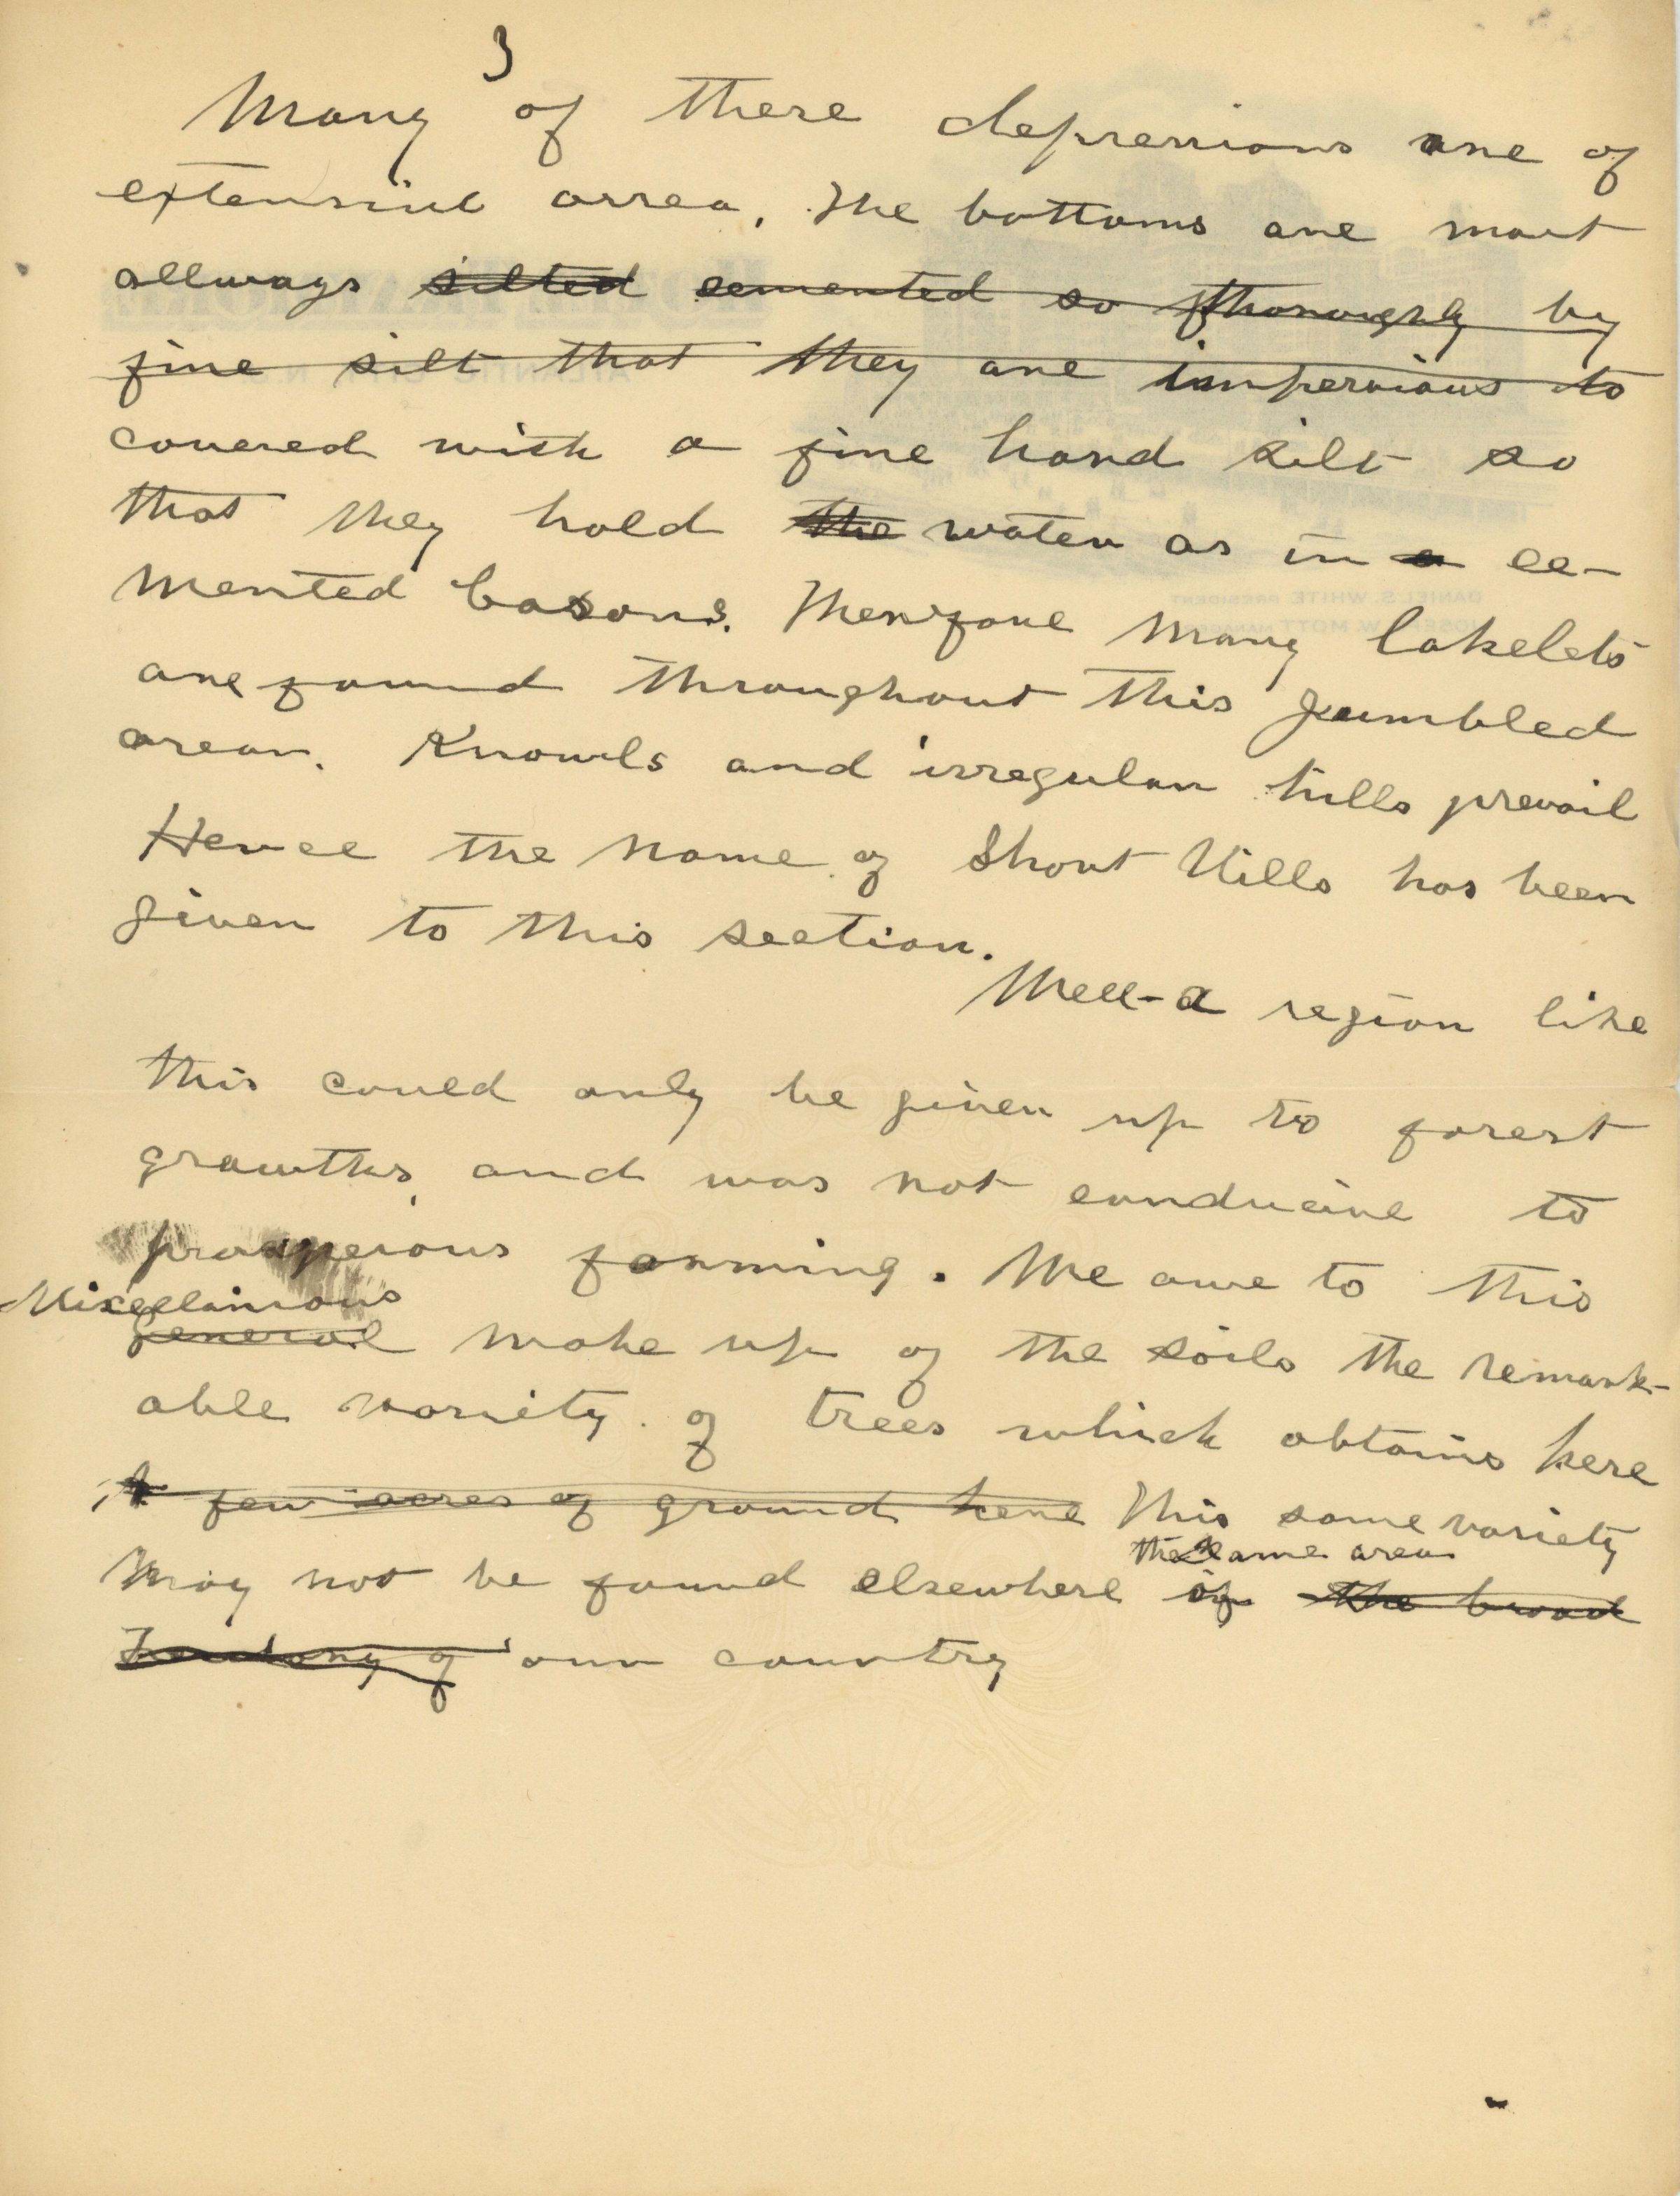 3
Many of these depressions are of
extensive arrea. The bottoms are most
allways silted cemented so thoroughly by
fine silt that they are impervious to
covered with a fine hard silt so
that they hold the water as in a ce-
mented basons. Therefore many lakelets
are found throughout this jumbled
arear. Knowls and irregular hills prevail
Hence the name of Short Hills has been
given to this section.
Well - a region like
this could only be given up to forest
growths, and was not conducive to
prosperious farming. We owe to this
Miscellanious
general make up of the soils the remark-
able variety of trees which obtains here
A few acres of ground here This same variety
the same area
may not be found elsewhere in the broad
of our country
DANIEL S. WHITE PRESIDENT